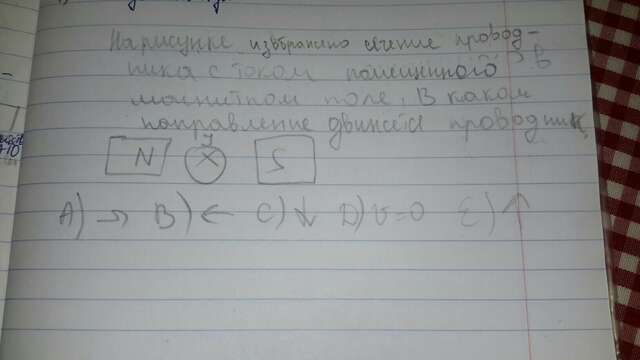 На рисунке изображено сечение провод-
ника с током помещенного в
магнитном поле. В каком
направление движется проводник.
N X S
A) → B) ← C) ↓ D) υ=0 E) ↑